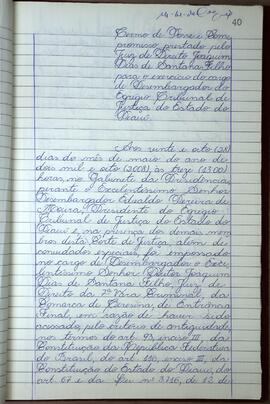 40
Termo de Posse e Com-
promisso prestado pelo
Juiz de Direito Joaquim
Dias de Santana Filho
para o exercício do cargo
de Desembargador do
Egrégio Tribunal de
Justiça do Estado do
Piauí.
Aos vinte e oito (28)
dias do mês de maio do ano de
dois mil e oito (2008), às treze (13:00)
horas, no Gabinete da Presidência,
perante o Excelentíssimo Senhor
Desembargador Edvaldo Pereira de
Moura, Presidente do Egrégio
Tribunal de Justiça do Estado do
Piauí e, na presença dos demais mem-
bros desta Corte de Justiça, além de
convidados especiais, foi empossado
no cargo de Desembargador o Exce-
lentíssimo Senhor Doutor Joaquim
Dias de Santana Filho, Juiz de
Direito da 7ª Vara Criminal da
Comarca de Teresina, de Entrância
Final, em razão de haver sido
acessado, pelo critério de antiguidade,
nos termos do art. 93, inciso III, da
Constituição da República Federativa
do Brasil, do art. inciso III, da
Constituição do Estado do Piauí, do
art. 67 e da Lei nº 3.716, de 12 de